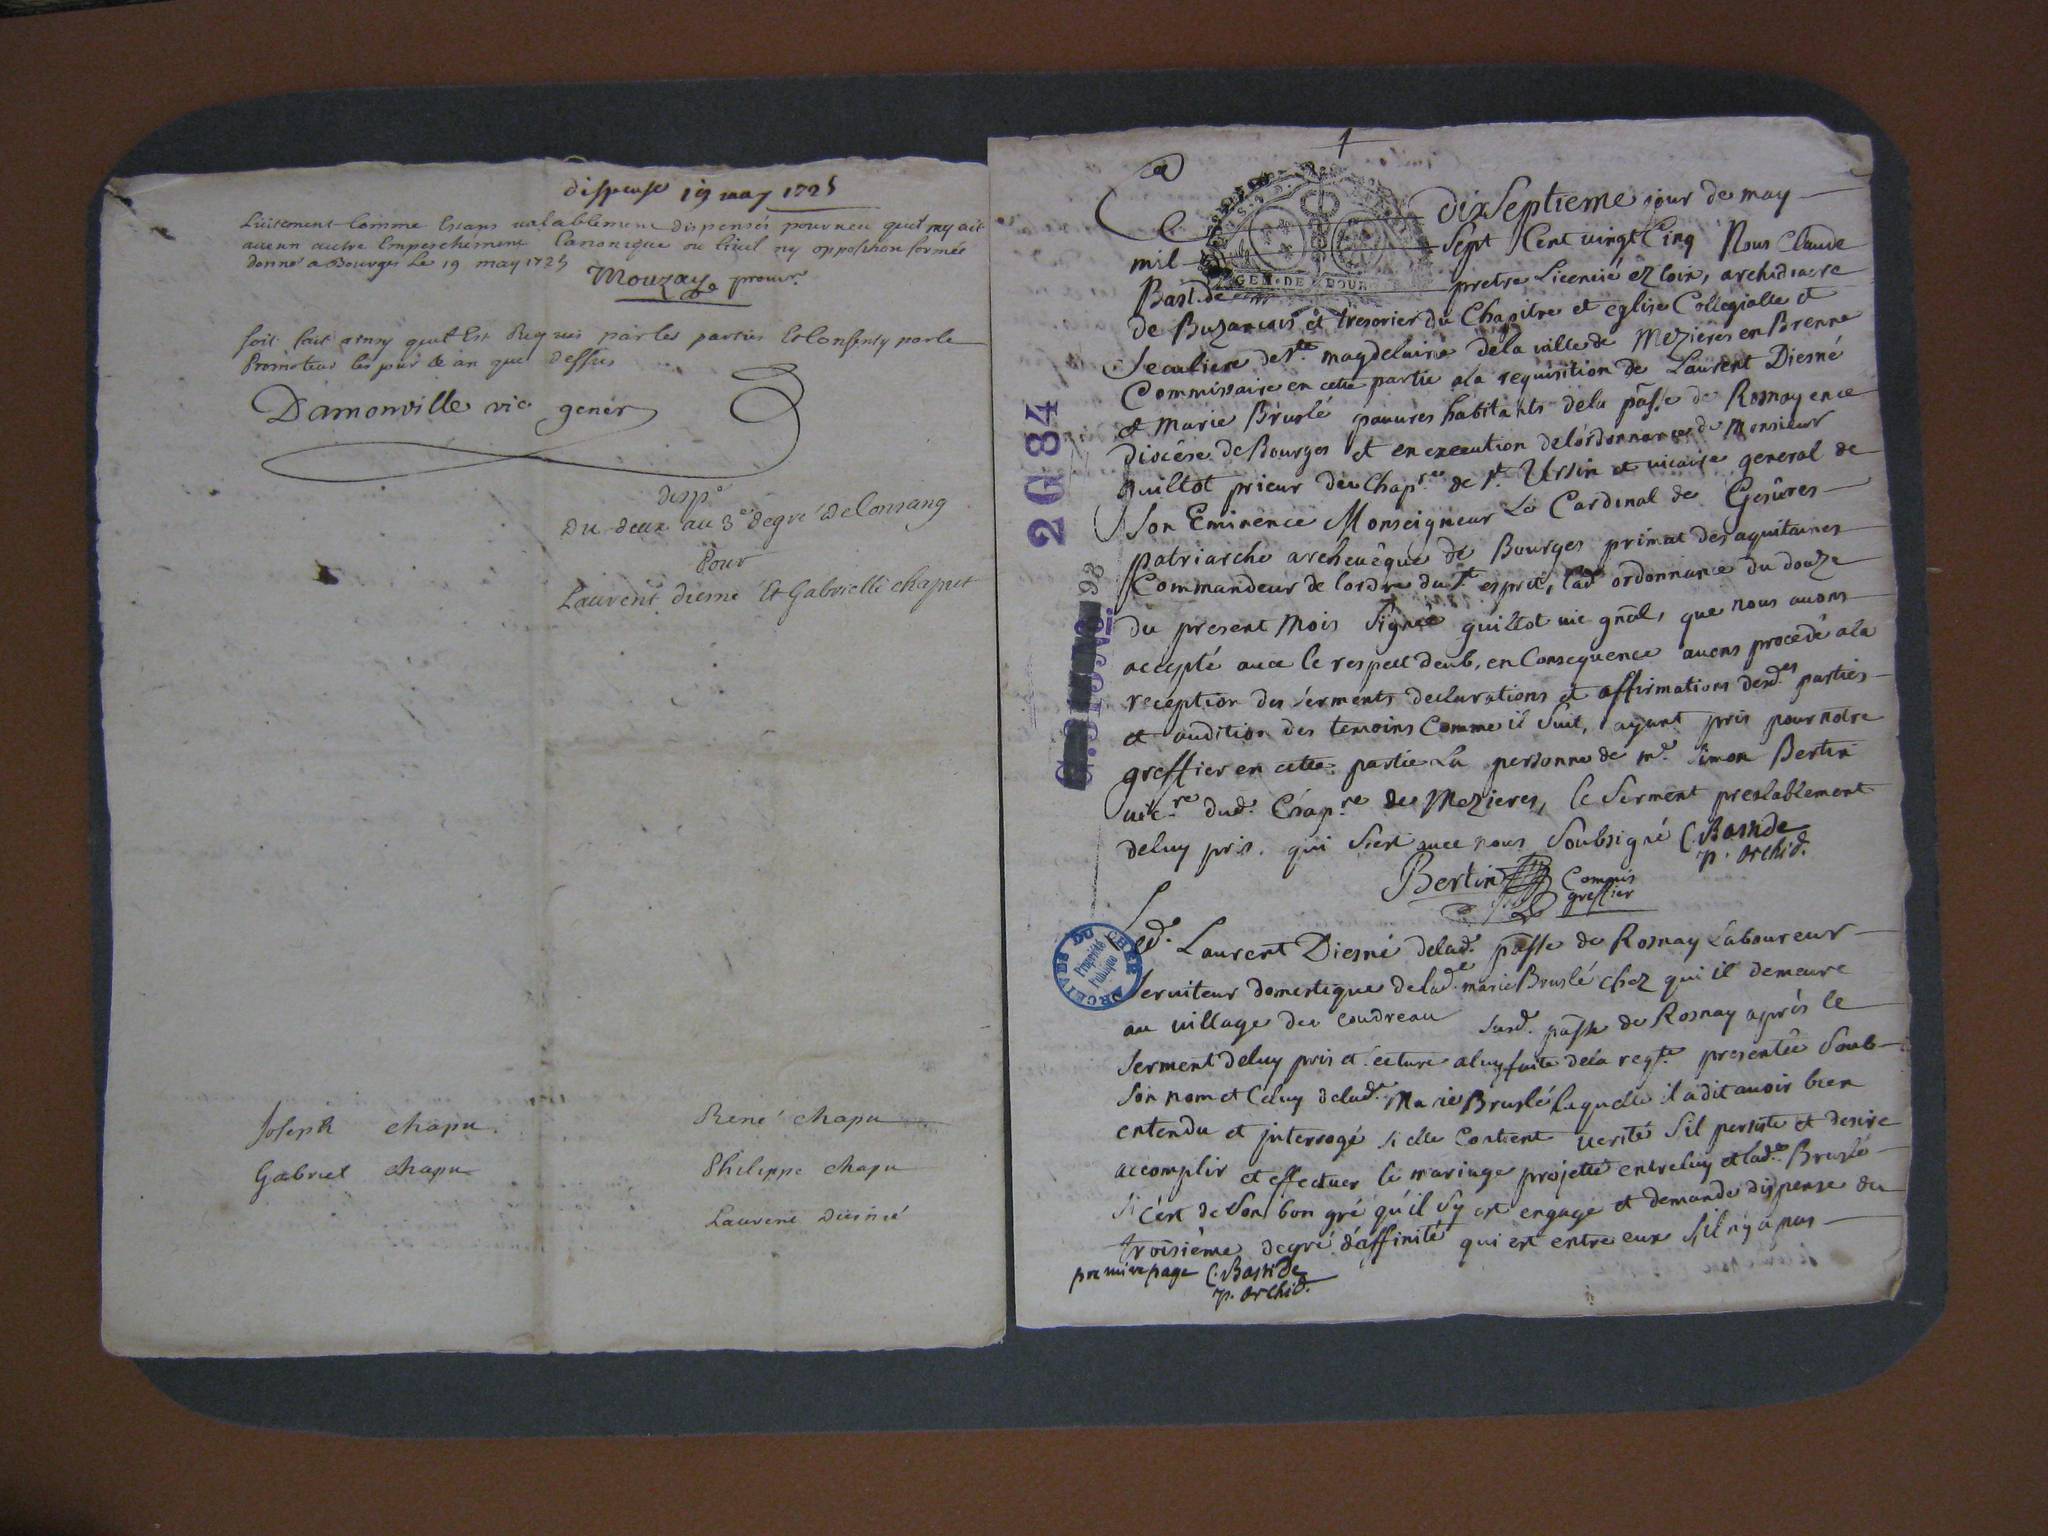 dispense 19 may 1725
Licitement Comme Estans valablement dispensés pourveu quil ny ait
aucun autre Empeschement Canonique ou Civil ny opposition formée
donné a Bourges Le 19 may 1725
Mouzay promr.
soit fait ainsy quil Est Requis par les parties Et Consenty par le
Promoteur les jour & an que dessus
Damonville vic gener
dispe
Du deux au 3e degré de Consang
Pour
Laurent diesné Et Gabrielle chaput
Joseph chapu
René chapu
Gabriel chapu
Philippe chapu
Laurent Diesné
Ce
Dix Septieme jour de may
mil
Sept Cent vingt Cinq Nous Claude
GEN. DE BOUR
Bastide
pretre Licencié ez loix, archidiacre
de Buzancois et tresorier du Chapitre et eglise Collegialle et
Seculiere de Ste. magdelaine de la ville de Mezieres en Brenne
Commissaire en cette partie a la requisition de Laurent Diesné
et Marie Bruslé pauvres habitants de la passe de Rosnay en ce
Diocése de Bourges et en execution de l'ordonnance de Monsieur
Guiltot prieur du Chapre de St. Ursin et vicaire general de
Son Eminence Monseigneur Le Cardinal de Gesures
patriarche archevêque de Bourges primat des aquitaines
Commandeur de l'ordre du St esprit, lad ordonnance du douze
du present Mois Signée guiltot vic gñal, que nous avons
accepté avec le respect deub, en Consequence avons procedé a la
reception des serments declarations et affirmations desd. parties
et audition des temoins Comme il Suit, ayant pris pour notre
greffier en cette partie La personne de me. Simon Bertin
vicre dud. Chapre de Mezieres, le Serment prealablement
de luy pris. qui s'est avec nous Soubsigné C. Bastide
p. archid.
Bertin Commis
greffier
Led. Laurent Diesné de lad. passe de Rosnay Laboureur
Serviteur domestique de lade marie Bruslé chez qui il demeure
au village du coudreau susd. passe de Rosnay aprés le
serment de luy pris et lecture a luy faite de la reqte. presentée Soub
Son nom et Celuy de lade. Marie Bruslé laquelle il a dit avoir bien
entendu et jnterrogé si elle Contient verité s'il persiste et desire
accomplir et effectuer le mariage projetté entre luy et lade. Bruslé
si c'est de Son bon gré qu'il s'y est engagé et demande dispense du
troisième degré d'affinité qui est entre eux s'il n'y a pas
premiere page C. Bastide
p. archid.
2 G 84
93
ARCHIVES DU CHER
Propriété
Publique